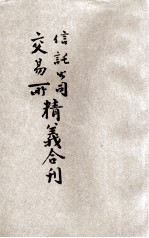 信託公司
交易所精義合刊